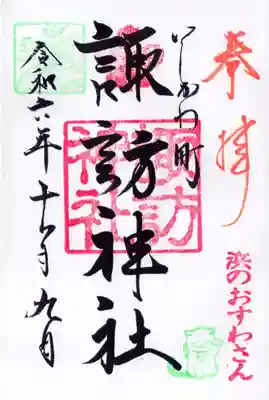 奉拝
浜のおすわさん
いしかわ町
諏訪神社
諏訪
神社
令和六年十一月九日